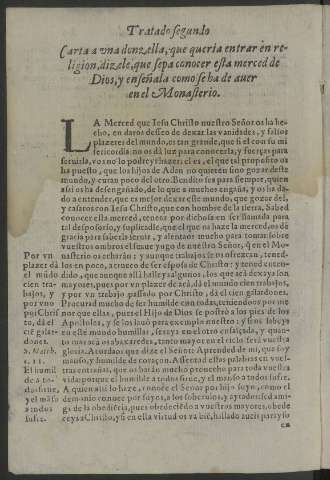 Tratado segundo
Carta a vna donzella, que queria entrar en re-
ligion, dizele, que sepa conocer esta merced de
Dios, y enseñala como se ha de auer
en el Monasterio.
LA Merced que Iesu Christo nuestro Señor os ha he-
cho, en daros desseo de dexar las vanidades, y falsos
plazeres del mundo, es tan grande, que si el con su mi
sericordia no os dà luz para conocerla, y fuerças para
seruirla, vos no lo podreys hazer: el es, el que tal proposito os
ha puesto, que los hijos de Adan no quieren sino gozar deste
mundo, y curan poco del otro. Bendito sea para siempre, quien
assi os ha desengañado, de lo que a muchos engaña, y os ha da-
do a entender, que es mejor dexar este mundo, que gozar del,
y casaros con Iesu Christo, que con hombre de la tierra. Sabed
conocer esta merced, teneos por dichosa en ser llamada para
tal desposorio, y suplicadle, que el que os haze la merced, os dè
gracia para saberla seruir, y alentaos mucho para tomar sobre
vuestros ombros el suaue yugo de nuestro Señor, q̃ en el Mo-
nasterio os echarán: y aunque trabajos se os ofrezcan, tened-
los en poco, a trueco de ser esposa de Christo: y tened enten-
dido, que aunque allà halleys algunos, los que acà dexays son
mayores, pues por vn plazer de acà, dà el mundo cien trabajos,
y por vn trabajo passado por Christo, dà el cien galardones.
Procurad mucho de ser humilde con todas, teniendoos por me
nor que ellas, pues el Hijo de Dios se postrò a los pies de los
Apostoles, y se los lauò para exemplo nuestro: y si os sabeys
en este mundo humillar, sereys en el otro ensalçada, y quan-
to mas acà os abaxaredes, tanto mayor en el cielo serà vuestra
gloria. Acordaos que dize el Señor: Aprended de mi, que soy
manso, y humilde de coraçon. Assentad estas palabras en vues-
tras entrañas, que os haràn mucho prouecho para toda vuestra
vida: porque el humilde a todos sirue, y el manso a todos sufre.
A quien assi lo haze, conoce el Señor por hijo suyo, como el
demonio conoce por suyos, a los soberuios, y ayrados: sed ami-
ga de la obediẽcia, pues obedeciẽdo a vuestros mayores, obede
ceys a Christo, y si en esta virtud os va biẽ, hallado aueis parayso
en
Por vn
plazer dà
el mũdo
cien tra-
bajos, y
por vno
por Chris
to, dà el
ciẽ galar-
dones.
Matth.
11.
El humil
de a to-
dos sirue,
y el mãso
a todos
sufre.